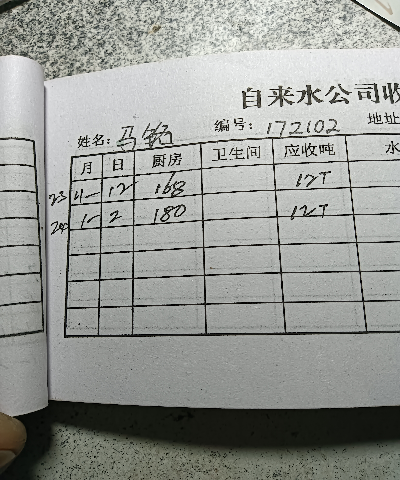 自来水公司收
姓名: 马铭 编号: 172102 地址
月 日 厨房 卫生间 应收吨 水
23 11 12 168 12T
24 1 2 180 12T